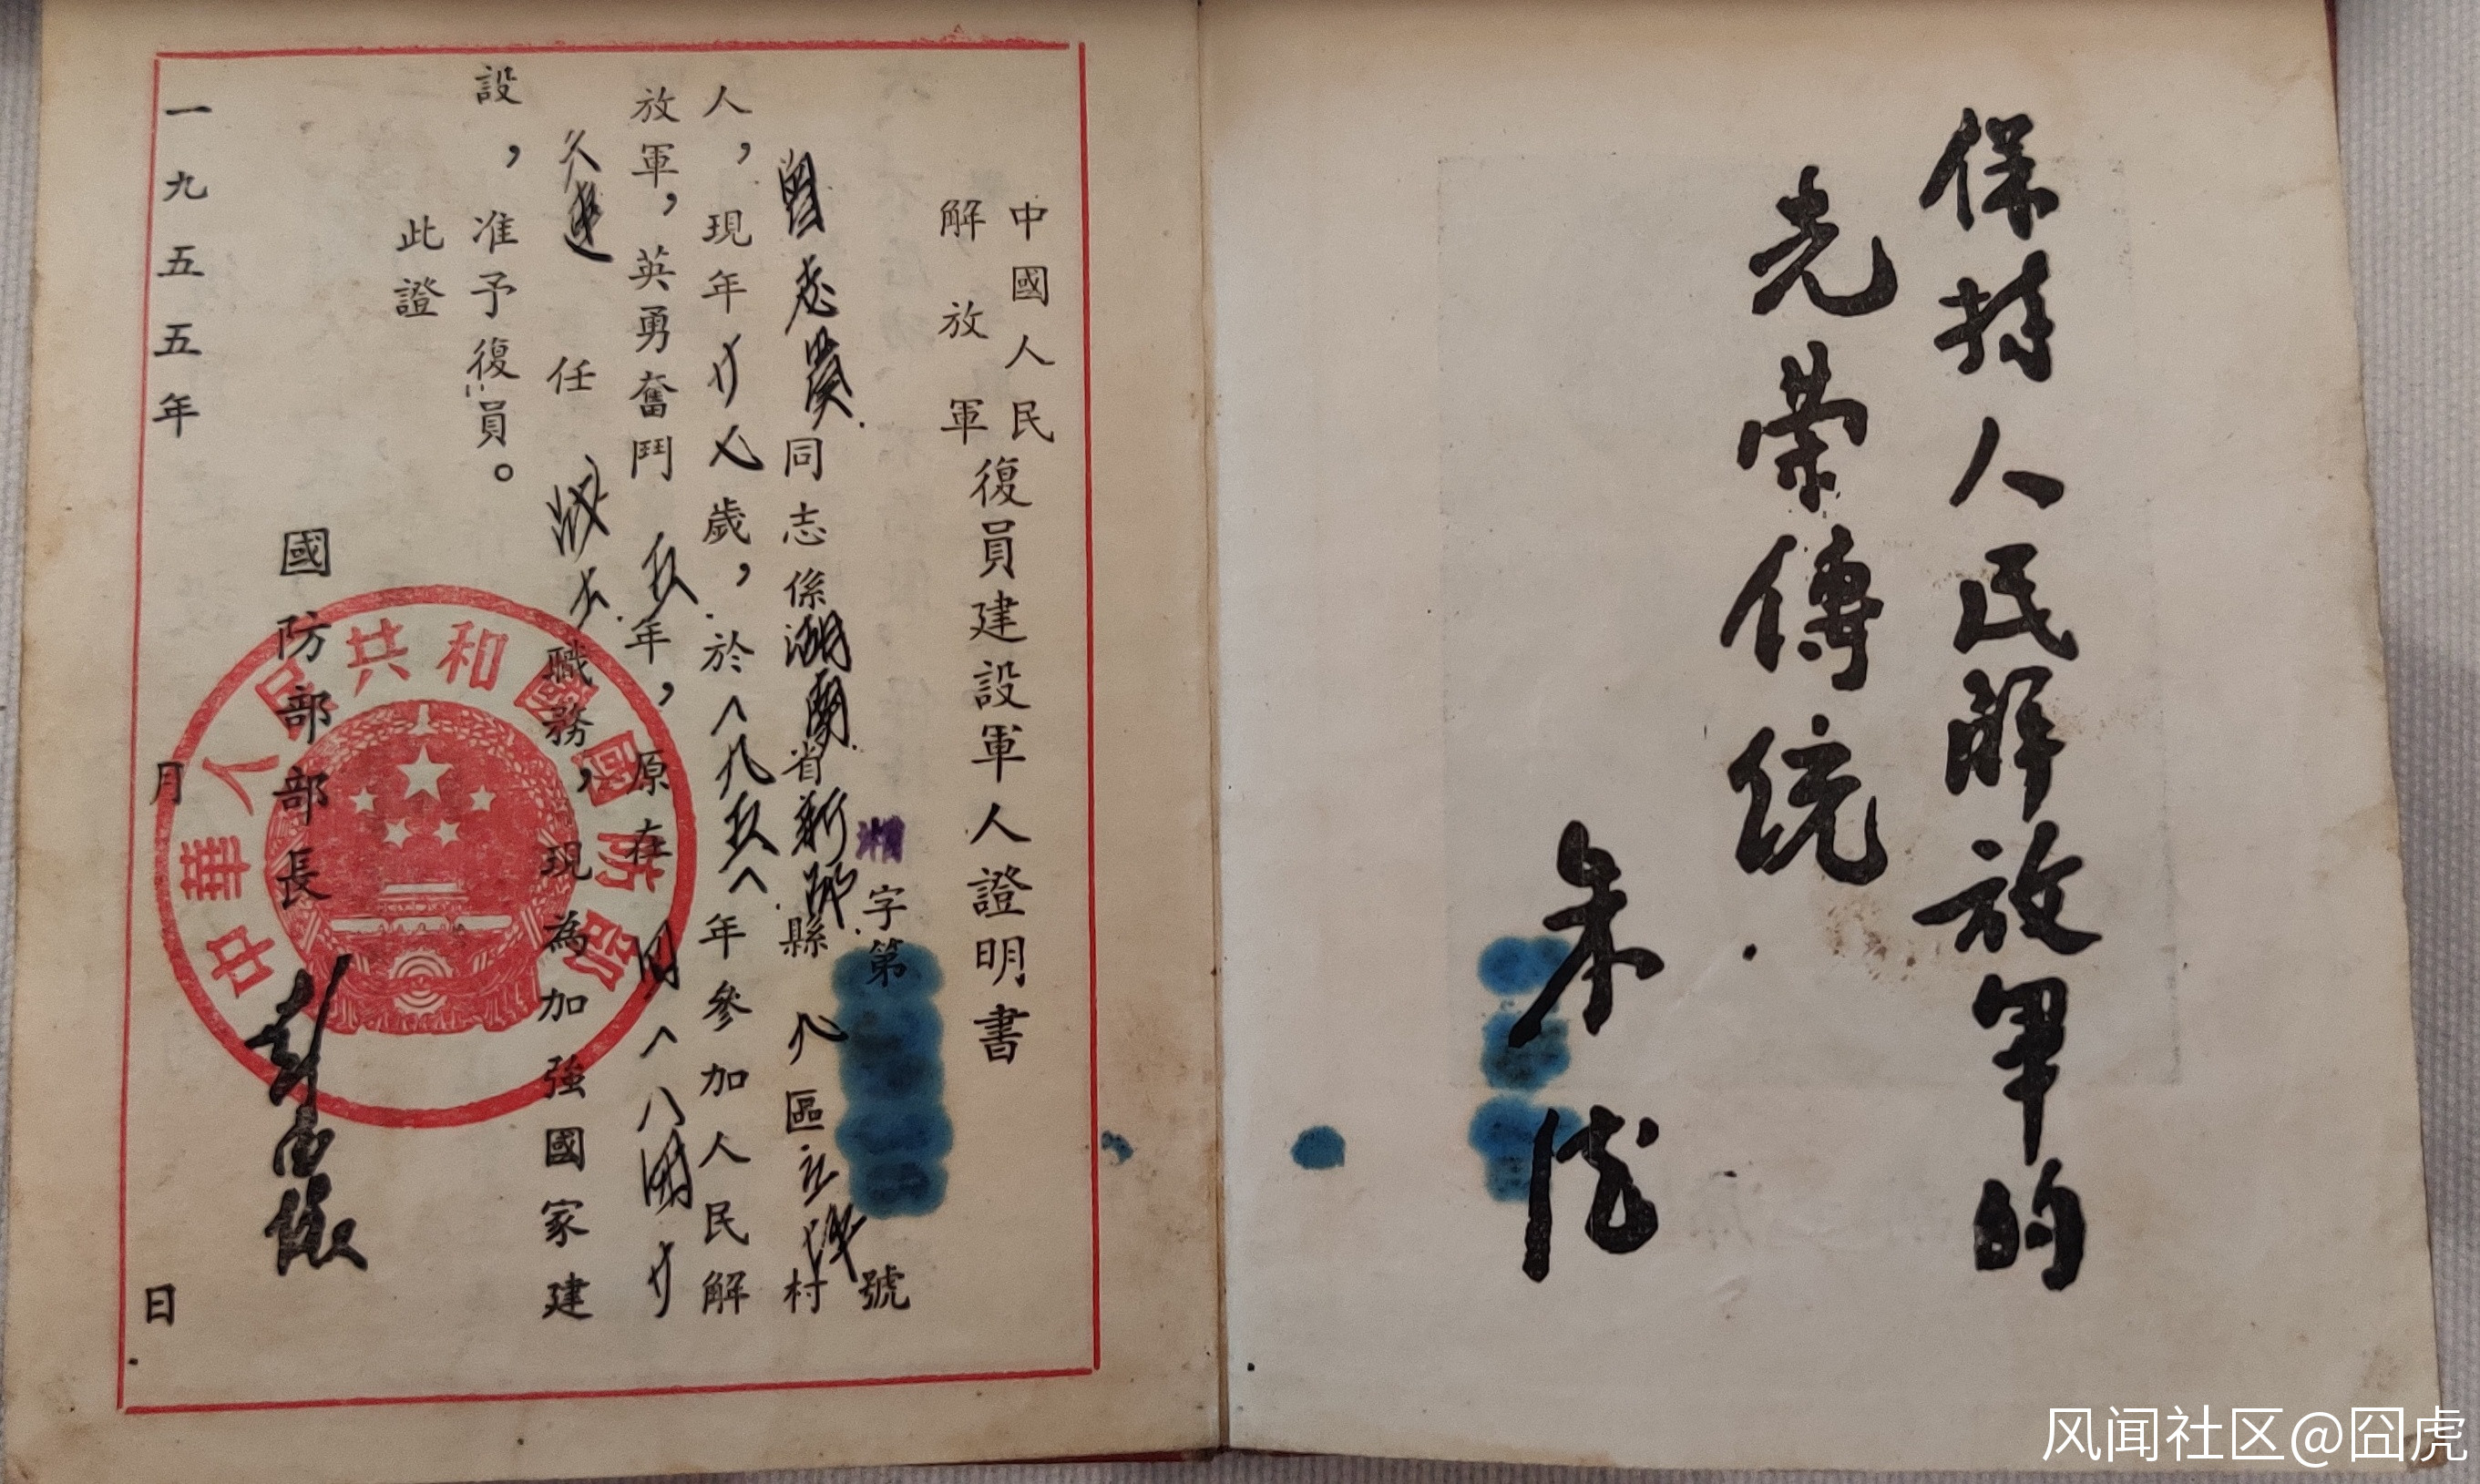 保持人民解放軍的
光荣傳统
朱德
中國人民
解放軍
復員建設軍人證明書
湘字第 號
曾 同志係湖南省新 縣 八區立 村
人，現年 歲，於一九五一年參加人民解
放軍，英勇奮鬥 五年，原在
連 任 職務，現為加強國家建
設，准予復員。
此證
國防部部長 彭德懷
一九五五年 月 日
中華人民共和國國防部
风闻社区@囧虎